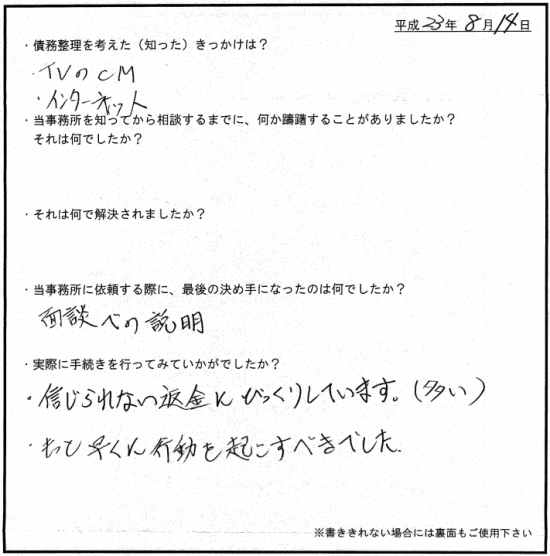 平成23年8月14日
・債務整理を考えた（知った）きっかけは？
・TVのCM
・インターネット
・当事務所を知ってから相談するまでに、何か躊躇することがありましたか？
それは何でしたか？
・それは何で解決されましたか？
・当事務所に依頼する際に、最後の決め手になったのは何でしたか？
面談への説明
・実際に手続きを行ってみていかがでしたか？
・信じられない返金にびっくりしています。（多い）
・もっと早くに行動を起こすべきでした.
※書ききれない場合には裏面もご使用下さい